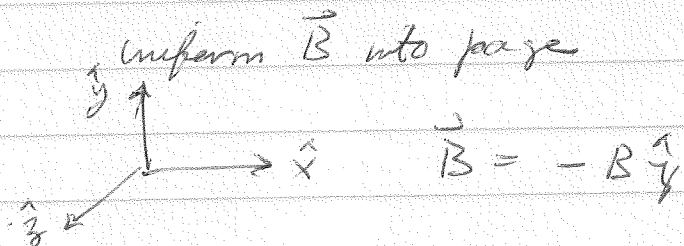 uniform B⃗ into page
ŷ
x̂ B⃗ = - B ŷ
ẑ